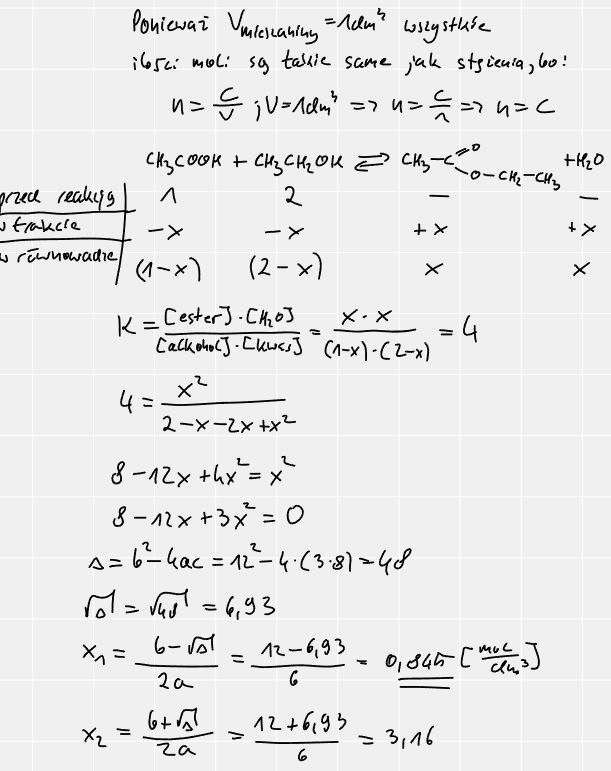 Ponieważ Vmieszaniny = 1dm³ wszystkie
ilości moli są takie same jak stężenia, bo:
n = C/V ; V=1dm³ => n = C/1 => n = C
CH₃COOH + CH₃CH₂OH ⇌ CH₃-C(=O)-O-CH₂-CH₃ + H₂O
przed reakcją | 1 2 — —
w trakcie | -x -x +x +x
w równowadze | (1-x) (2-x) x x
K = [ester]·[H₂O] / [alkohol]·[kwas] = x·x / (1-x)·(2-x) = 4
4 = x² / 2-x-2x+x²
8-12x+4x² = x²
8-12x+3x² = 0
Δ = b²-4ac = 12²-4·(3·8) = 48
√Δ = √48 = 6,93
x₁ = b-√Δ / 2a = 12-6,93 / 6 = 0,845 [mol/dm³]
x₂ = b+√Δ / 2a = 12+6,93 / 6 = 3,16